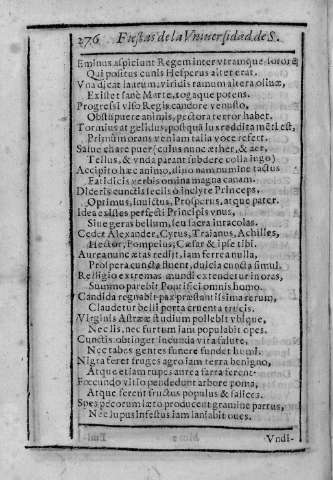 276 Fiestas de la Vniuersidad de S.
Eminus aspiciunt Regem inter vtramque sororē,
Qui positus cunis Hesperus alter erat.
Vna dicat laurum, viridis ramum altera oliuæ,
Existet sanè Marte, togaque potens.
Progressi viso Regis candore venusto,
Obstupuere animis, pectora terror habet.
Tornius at gelidus, postquā lux reddita mēti est,
Primum orans veniam talia voce refert.
Salue chare puer (cui us nunc æther, & aer,
Tellus, & vnda parant subdere colla iugo)
Accipito hæc animo, siuo nam numine tactus
Fatidicis verbis omina magna canam.
Diceris cunctis sæclis ò inclyte Princeps,
Optimus, Inuictus, Prosperus, atque pater.
Idea existes perfecti Principis vnus,
Siue geras bellum, seu sacra iura colas.
Cedet Alexander, Cyrus, Traianus, Achilles,
Hector, Pompeius, Cæsar & ipse tibi.
Aurea nunc ætas redijt, iam ferrea nulla,
Prospera cuncta fluent, dulcia cuncta simul.
Religio extremas mundi extendetur in oras,
Summo parebit Pontifici omnis homo.
Candida regnabit pax præstantissima rerum,
Claudetur belli porta cruenta trucis.
Virginis Astrææ studium pollebit vbique,
Nec lis, nec furtum iam populabit opes.
Cunctis obtinget iucunda vita salute,
Nec tabes gentes funere fundet humi.
Nigra feret fruges agro iam terra benigno,
Atque etiam rupes aurea farra ferent.
Fœcundo vitio pendebunt arbore poma,
Atque ferent fructus populus & salices.
Spes pecorum læto producent gramine partus,
Nec lupus infestus iam laniabit oues.
Vndi-